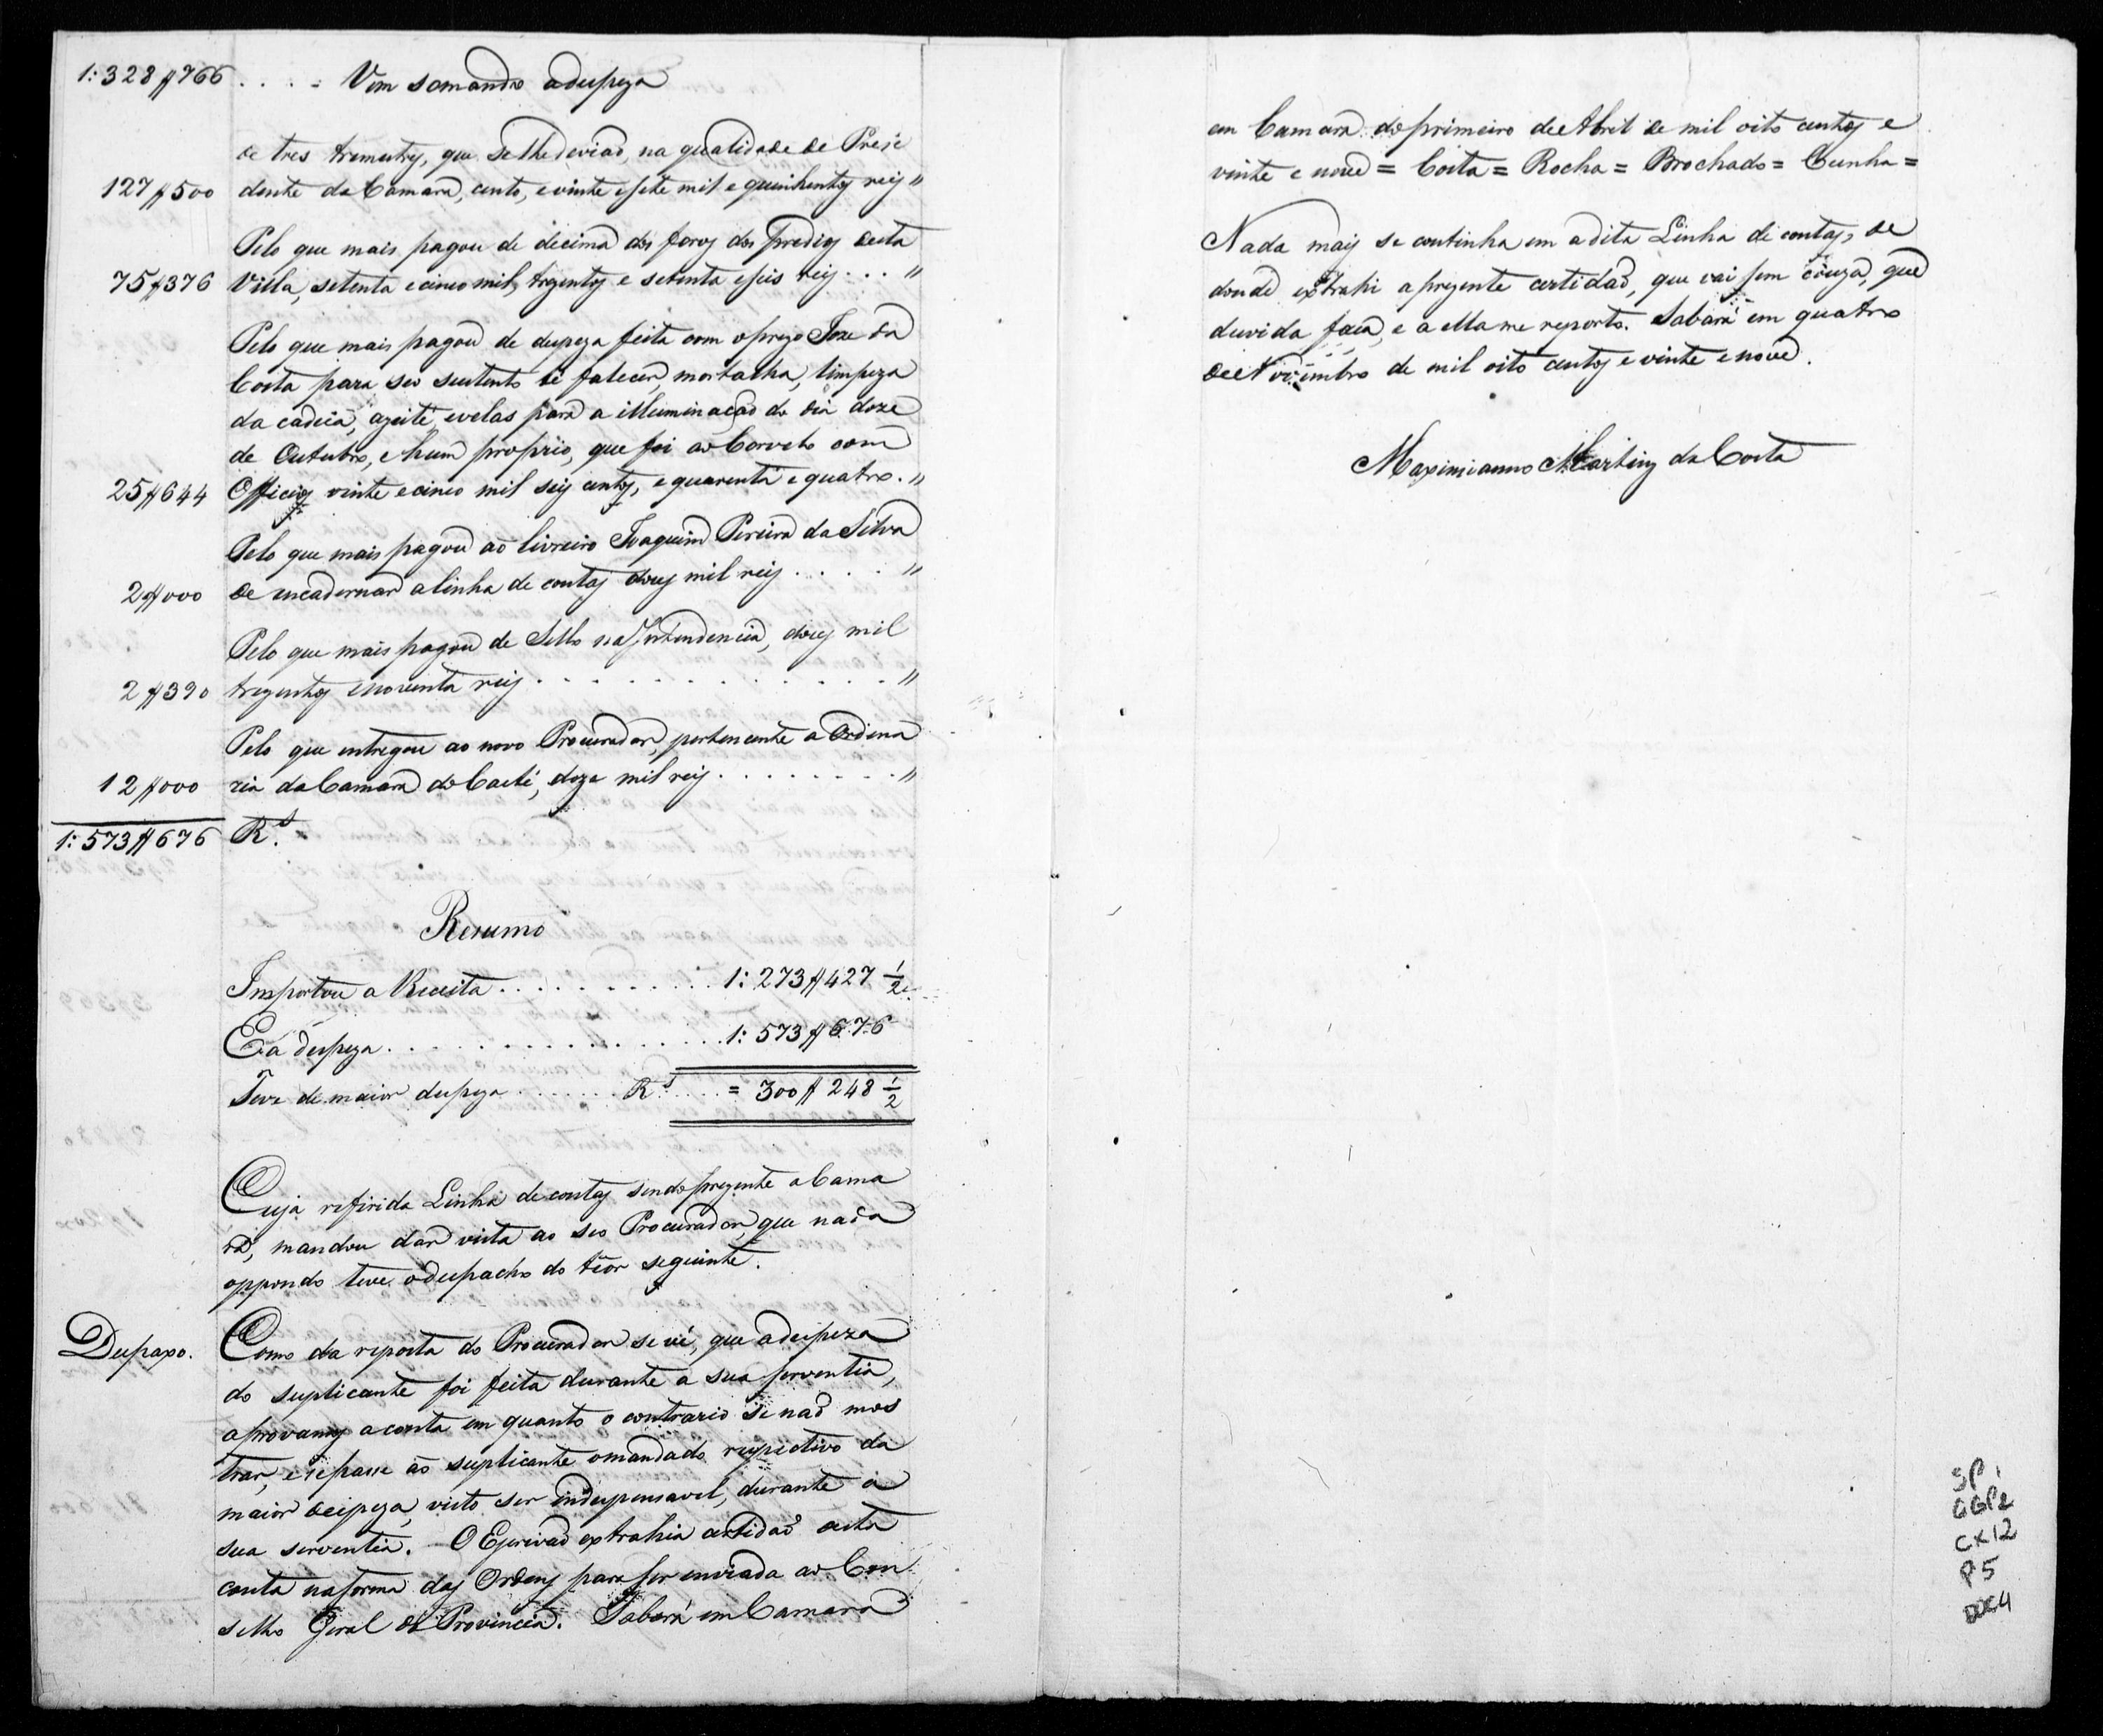 1:328$766 . . . . Vem somando a despeza
de tres trimestres, que se lhe devião, na qualidade de Presi
127$500 dente da Camara, cento, e vinte e sete mil e quinhentos reis "
Pelo que mais pagou de decima dos foros dos predios desta
75$376 Villa, setenta e cinco mil, trezentos e setenta e seis reis . . . "
Pelo que mais pagou de despeza feita com o prezo Joze da
Costa para seo sustento té falecer, mortalha, limpeza
da cadeia, azeite, e velas para a illuminação do dia doze
de Outubro, e hum proprio, que foi ao Corvelo com
25$644 Officios vinte e cinco mil seis centos, e quarenta e quatro . "
Pelo que mais pagou ao livreiro Joaquim Pereira da Silva
2$000 de encadernar a linha de contas dous mil reis . . . . . "
Pelo que mais pagou de Sello na Intendencia, dous mil
2$390 trezentos e noventa reis . . . . . . . . . . . . "
Pelo que entregou ao novo Procurador, pertencente a Ordena
12$000 ria da Camara do Caeté, doze mil reis . . . . . . . . "
1:573$676 Rs.
Resumo
Importou a Receita . . . . . . . . . . . . 1:273$427 1/2
E a despeza . . . . . . . . . . . . . . . . . 1:573$676
Teve de maior despeza . . . . . . . Rs. . . . = 300$248 1/2
Cuja referida Linha de contas sendo prezente a Cama
ra, mandou dar vista ao seo Procurador, que nada
oppondo teve o despacho do teor seguinte.
Despaxo. Como da reposta do Procurador se vê, que a despeza
do suplicante foi feita durante a sua serventia,
aprovamos a conta em quanto o contrario se não mos
trar, e se passe ao suplicante o mandado respectivo da
maior despeza, visto ser indespensavel, durante a
sua serventia. O Escrivão extrahia certidão desta
conta na forma das Ordens para ser enviada ao Con
selho Geral da Provincia. Sabará em Camara
em Camara do primeiro de Abril de mil oito centos e
vinte e nove = Costa = Rocha = Brochado = Cunha =
Nada mais se continha em a dita Linha de contas, de
donde extrahi a prezente certidão, que vai sem couza, que
duvida faça, e a ella me reporto. Sabará em quatro
de Novembro de mil oito centos e vinte e nove.
Maximianno Martins da Costa
SP
GGP2
CX12
P5
DOC4